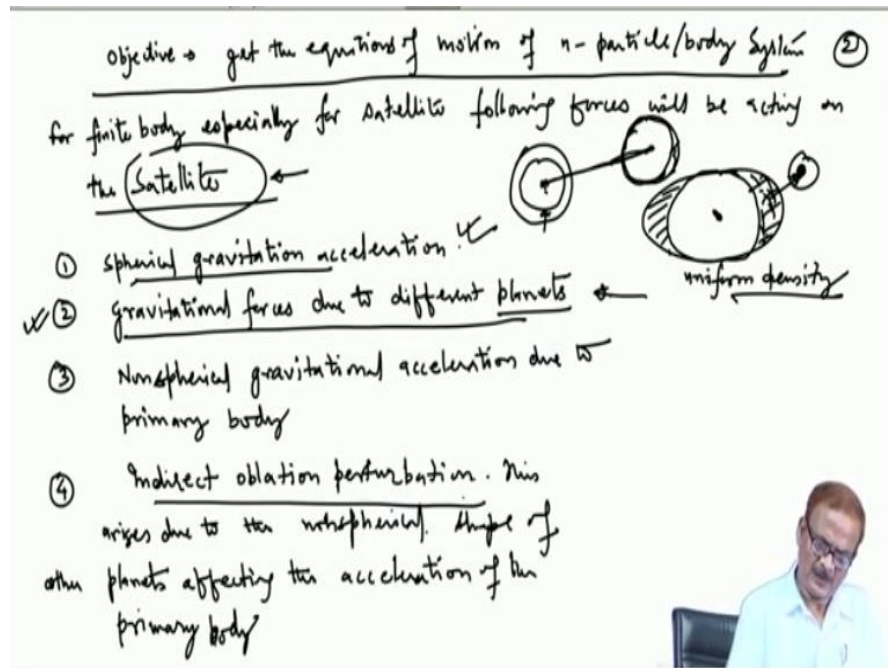 objective → get the equations of motion of n-particle/body System ②
for finite body especially for satellite following forces will be acting on
the Satellite ←
① spherical gravitation acceleration.
② gravitational forces due to different planets ←
uniform density
③ Nonspherical gravitational acceleration due to
primary body
④ Indirect oblation perturbation. This
arises due to the nonspherical shape of
other planets affecting the acceleration of the
primary body